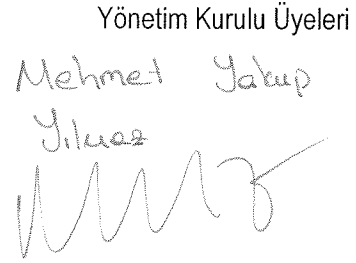 Yönetim Kurulu Üyeleri
Mehmet Yakup
Yılmaz